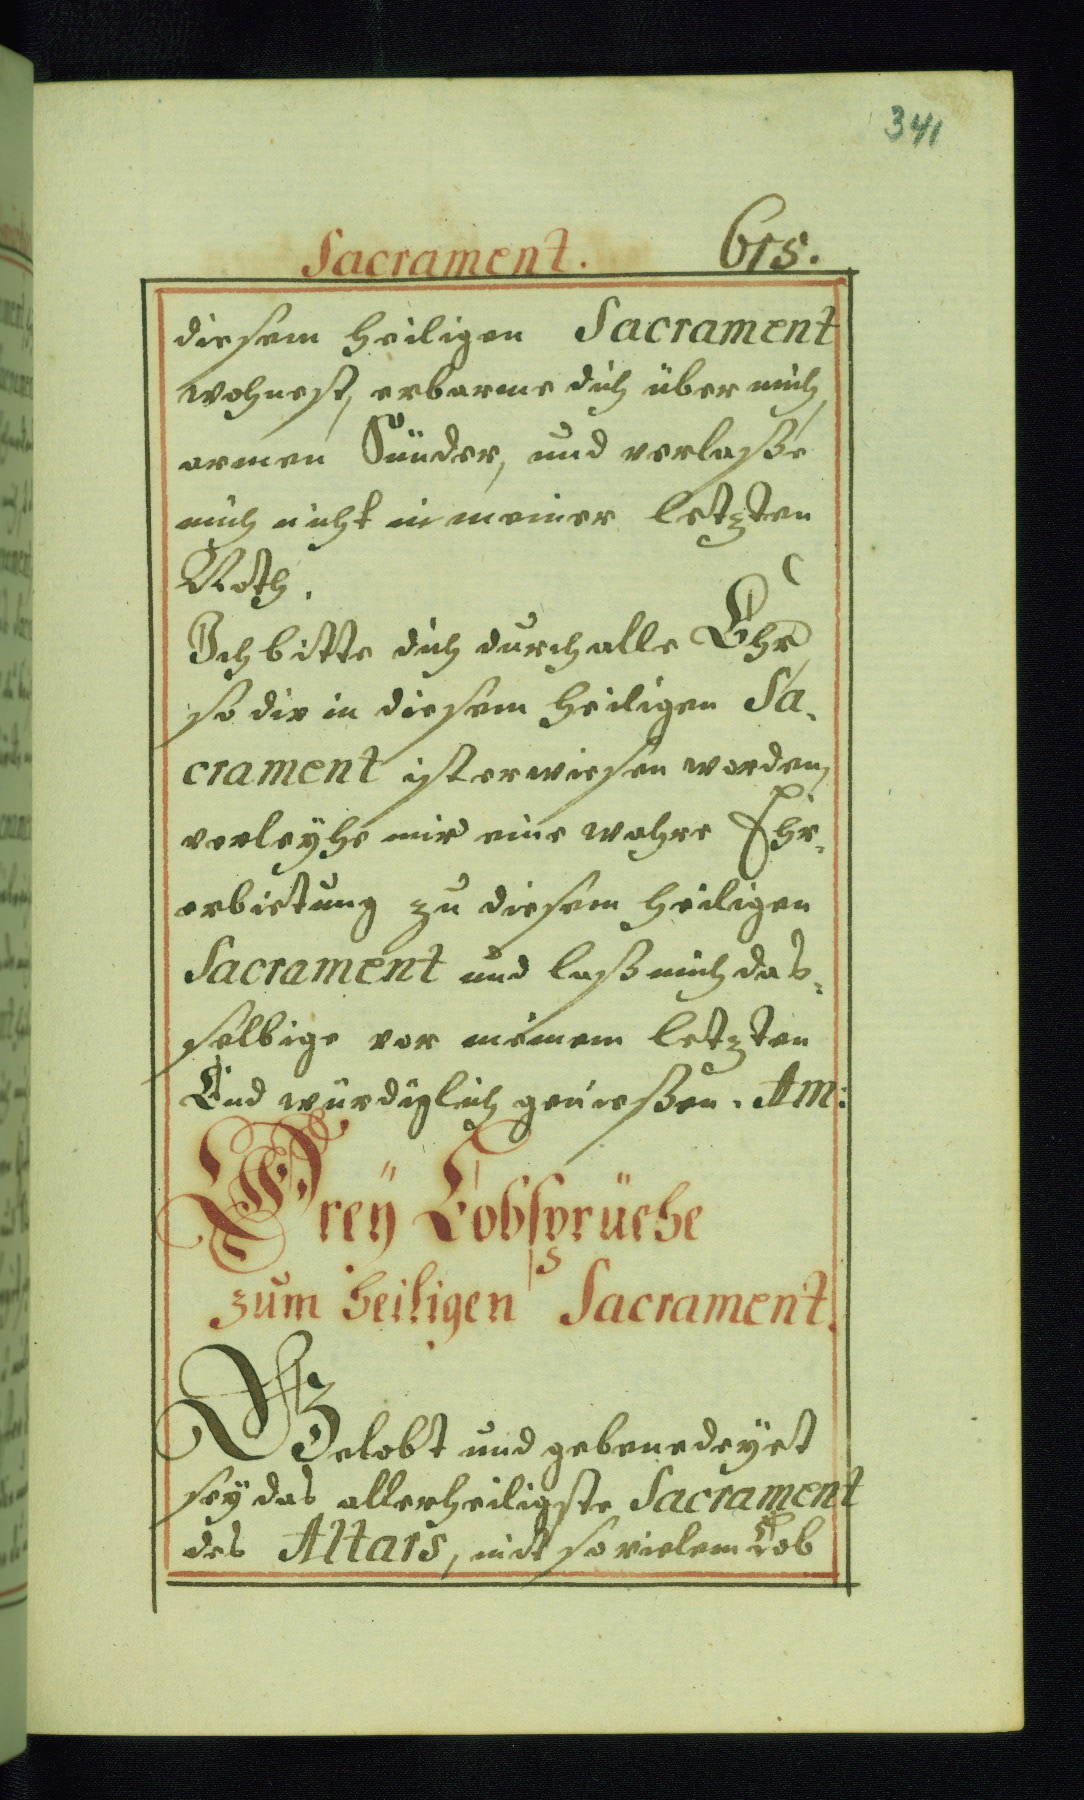 341
Sacrament. 615.
diesem heiligen Sacrament
wohnest, erbarme dich über mich
armen Sünder, und verlaße
mich nicht in meiner letzten
Noth.
Ich bitte dich durch alle Ehr,
so dir in diesem heiligen Sa-
crament ist erwiesen worden,
verleyhe mir eine wahre Ehr-
erbietung zu diesem heiligen
Sacrament und laß mich das-
selbige vor meinem letzten
End würdiglich genießen. Am:
Drey Lobsprüche
zum heiligen Sacrament.
Gelobt und gebenedeyet
sey das allerheiligste Sacrament
des Altars, mit so vielem Lob